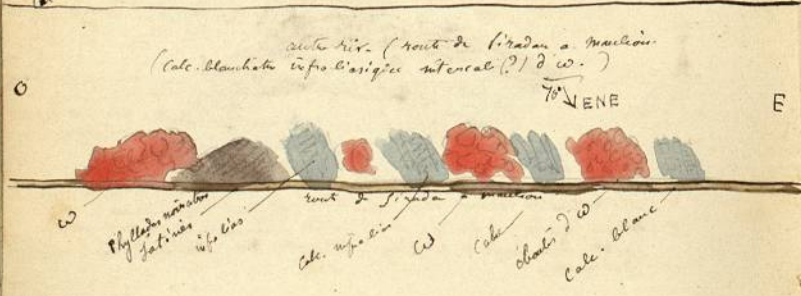 autre riv. (route de Siradan a mauléon.
(calc. blanchatre infraliasique intercal (?) d'ω.)
O
70° ENE
E
route de Siradan a mauléon
ω
Phyllades noirâtres
satinés
infralias
calc. infralias
ω
calc
éboulis d'ω
calc. blanc